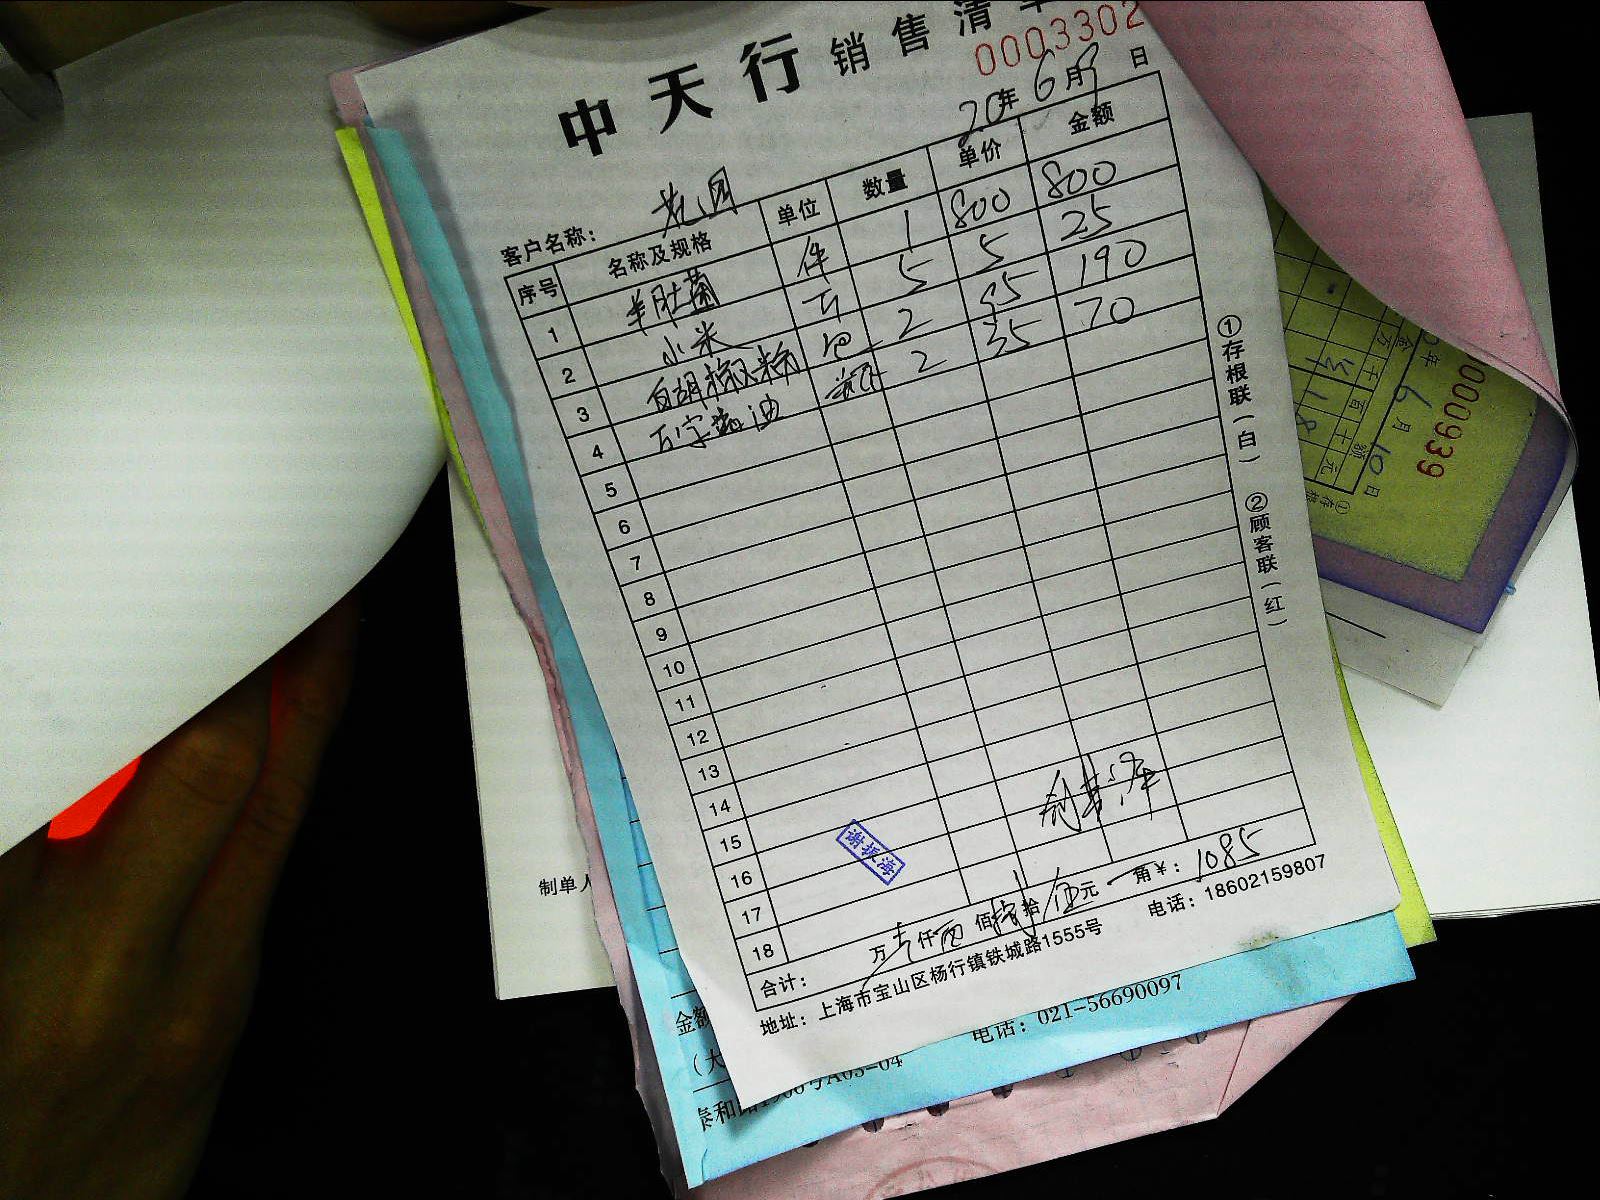 中天行 销售清单
0003302
20年6月9日
客户名称:
序号 名称及规格 单位 数量 单价 金额
1 羊肚菌 件 1 800 800
2 小米 斤 5 5 25
3 白胡椒粉 包 2 95 190
4 万字酱油 2 35 70
5
6
7
8
9
10
11
12
13
14
15
16
17
18
谢振海
合计: 万 壹仟 佰 拾 伍元 角¥: 1085
地址: 上海市宝山区杨行镇铁城路1555号 电话: 18602159807
①存根联(白) ②顾客联(红)
制单人
金额
(大
电话: 021-56690097
A03-04
0000939
6月10日